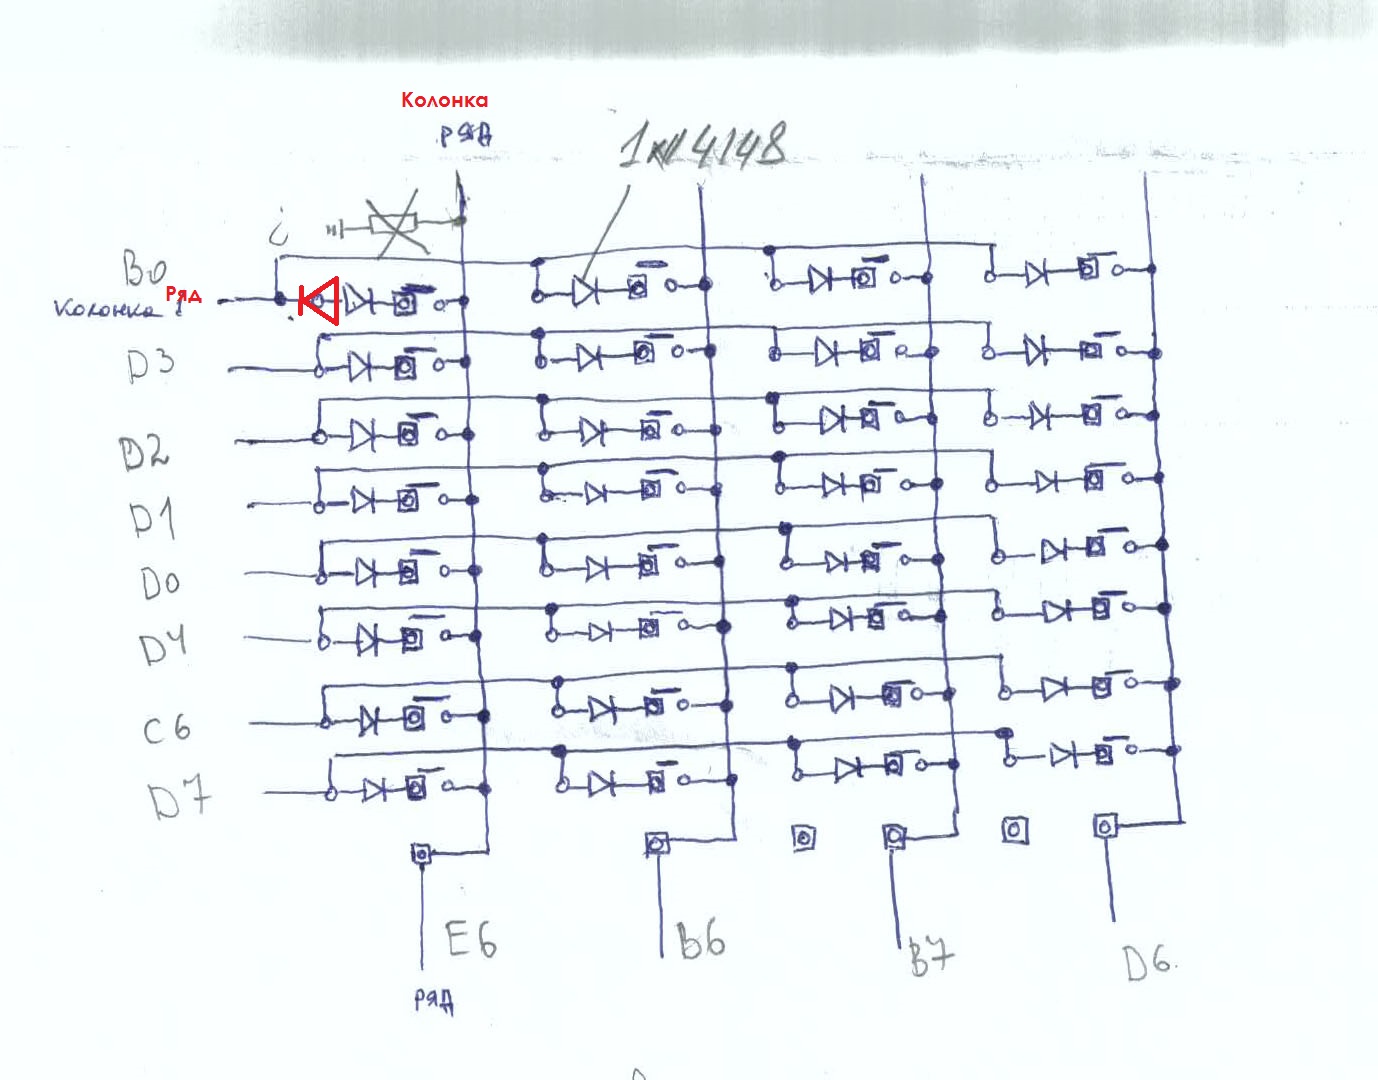 Колонка
ряд
1N4148
B0
Ряд
колонка 1
D3
D2
D1
D0
D4
C6
D7
E6
B6
B7
D6.
ряд